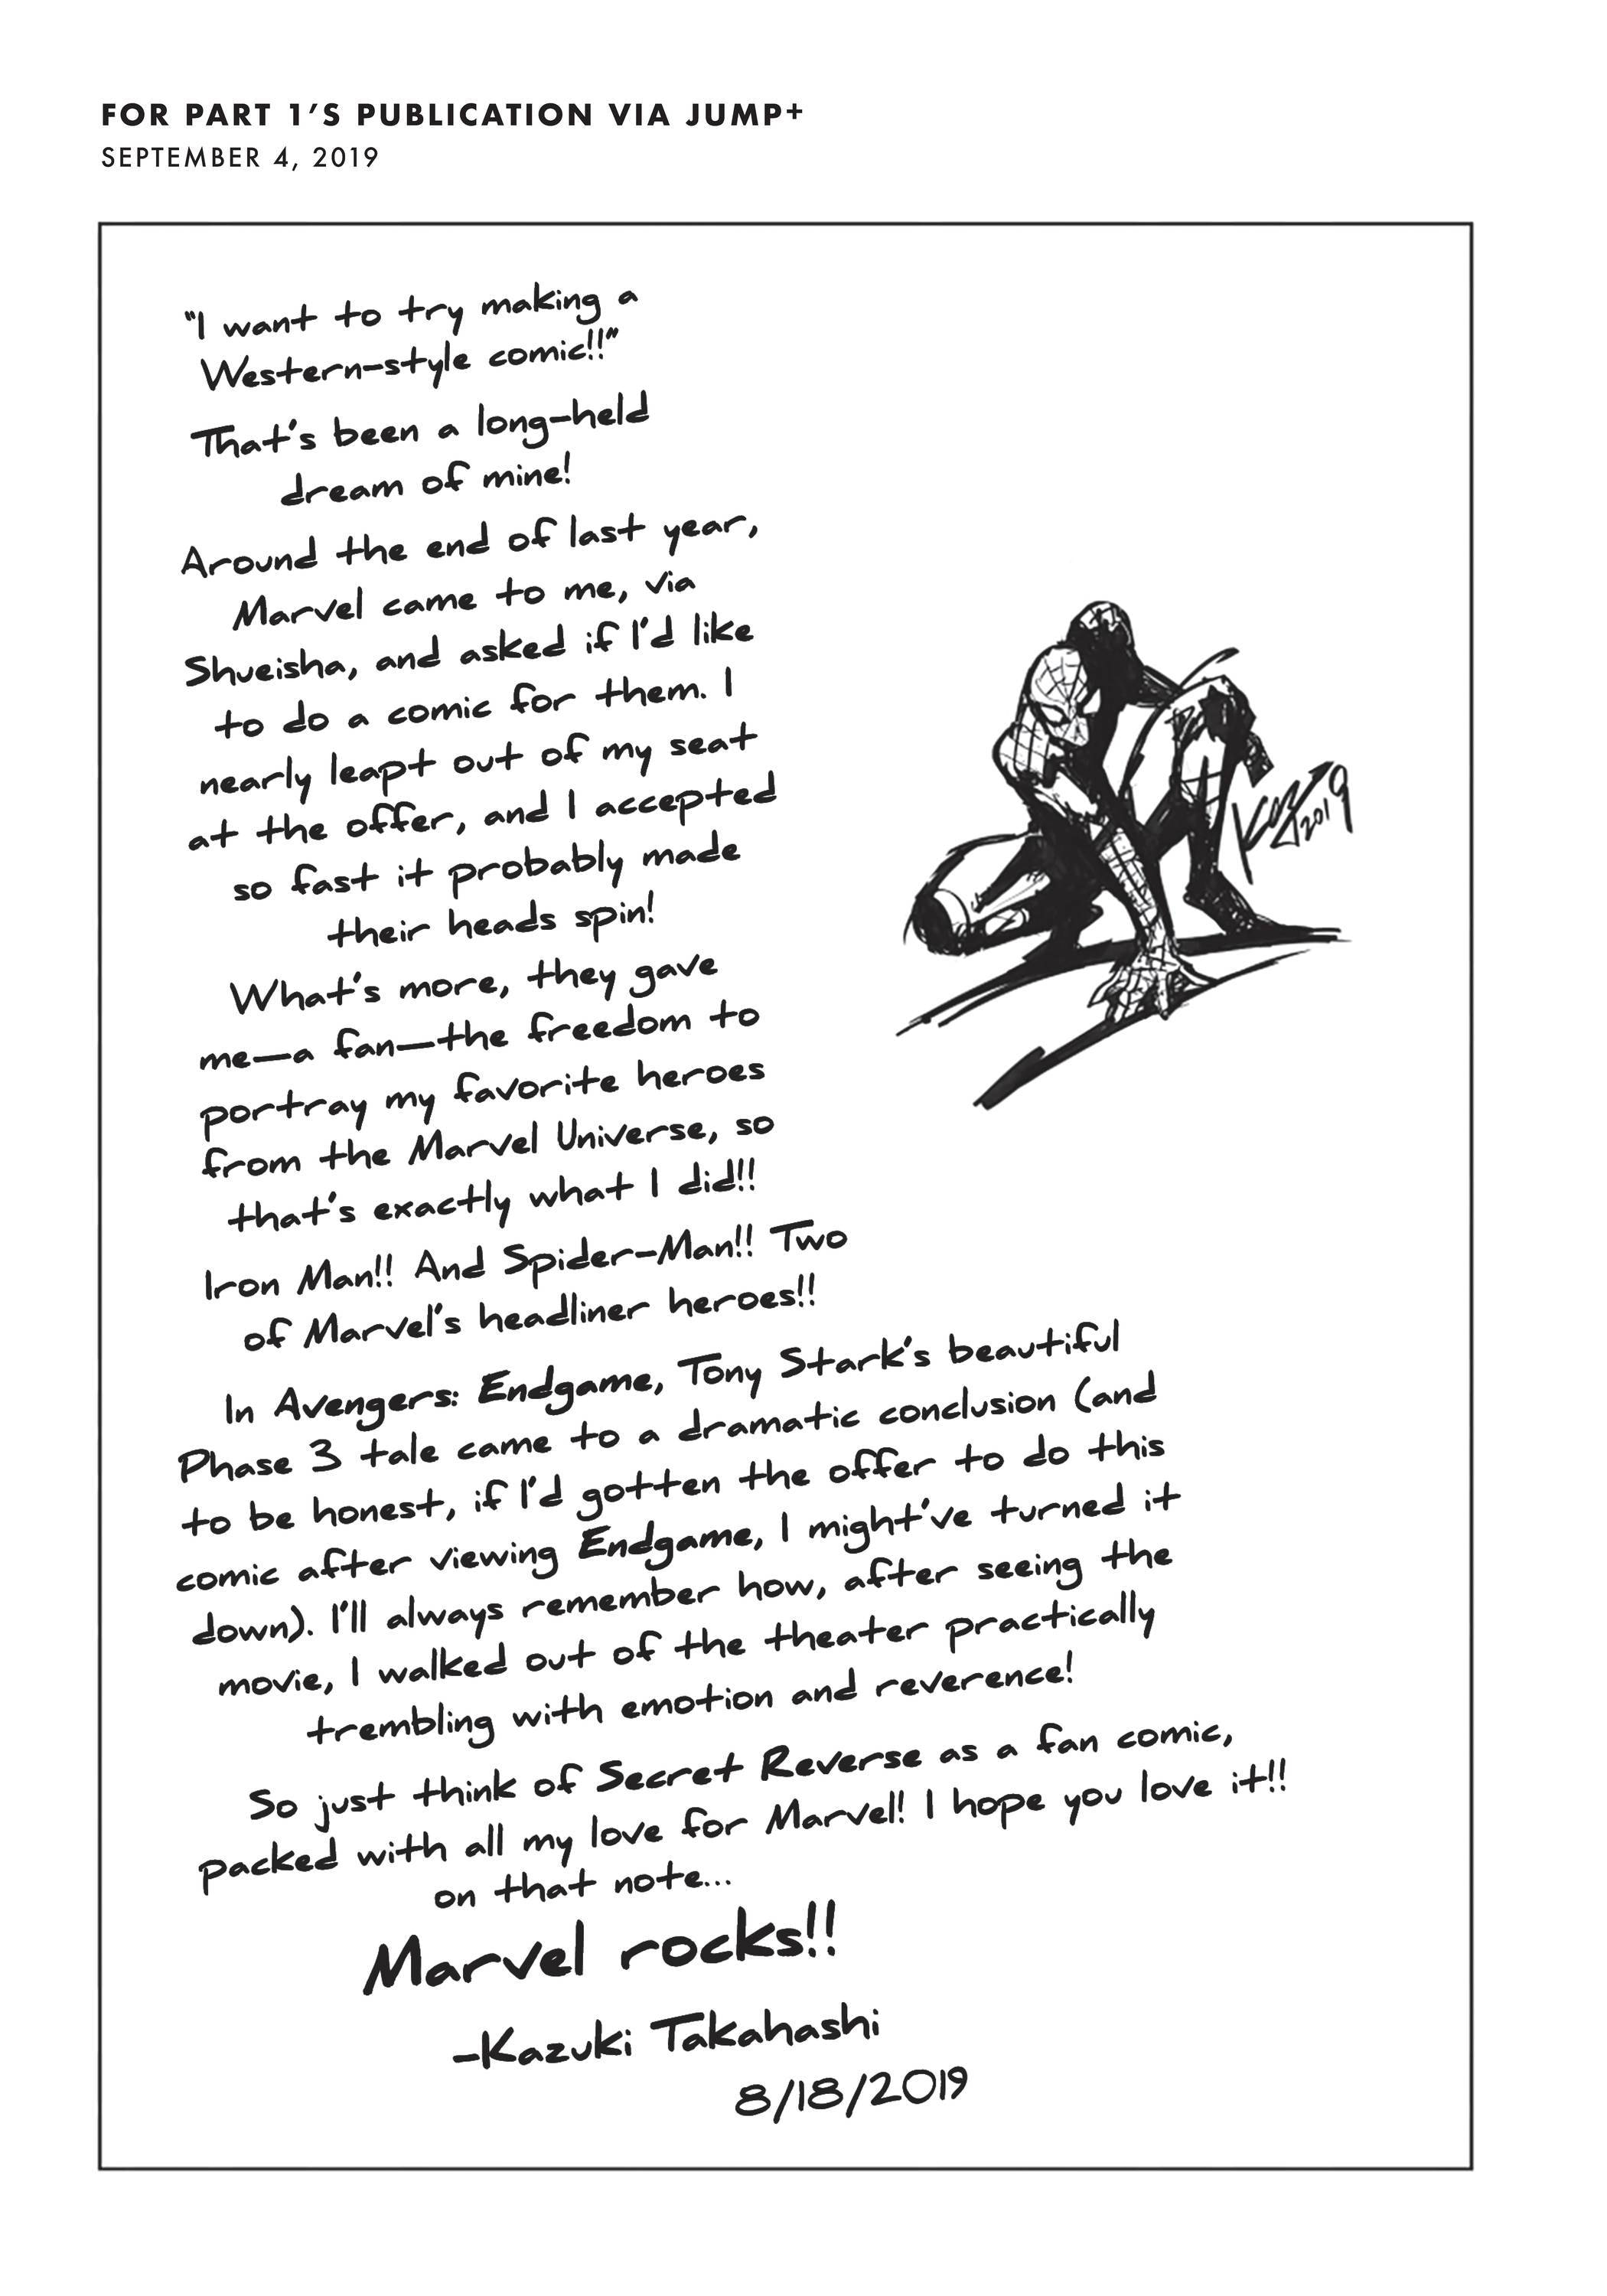 FOR PART 1'S PUBLICATION VIA JUMP+
SEPTEMBER 4, 2019
"I want to try making a
Western-style comic!!"
That's been a long-held
dream of mine!
Around the end of last year,
Marvel came to me, via
Shueisha, and asked if I'd like
to do a comic for them. I
nearly leapt out of my seat
at the offer, and I accepted
so fast it probably made
their heads spin!
What's more, they gave
me—a fan—the freedom to
portray my favorite heroes
from the Marvel Universe, so
that's exactly what I did!!
Iron Man!! And Spider-Man!! Two
of Marvel's headliner heroes!!
In Avengers: Endgame, Tony Stark's beautiful
Phase 3 tale came to a dramatic conclusion (and
to be honest, if I'd gotten the offer to do this
comic after viewing Endgame, I might've turned it
down). I'll always remember how, after seeing the
movie, I walked out of the theater practically
trembling with emotion and reverence!
So just think of Secret Reverse as a fan comic,
packed with all my love for Marvel! I hope you love it!!
on that note...
Marvel rocks!!
-Kazuki Takahashi
8/18/2019
2019